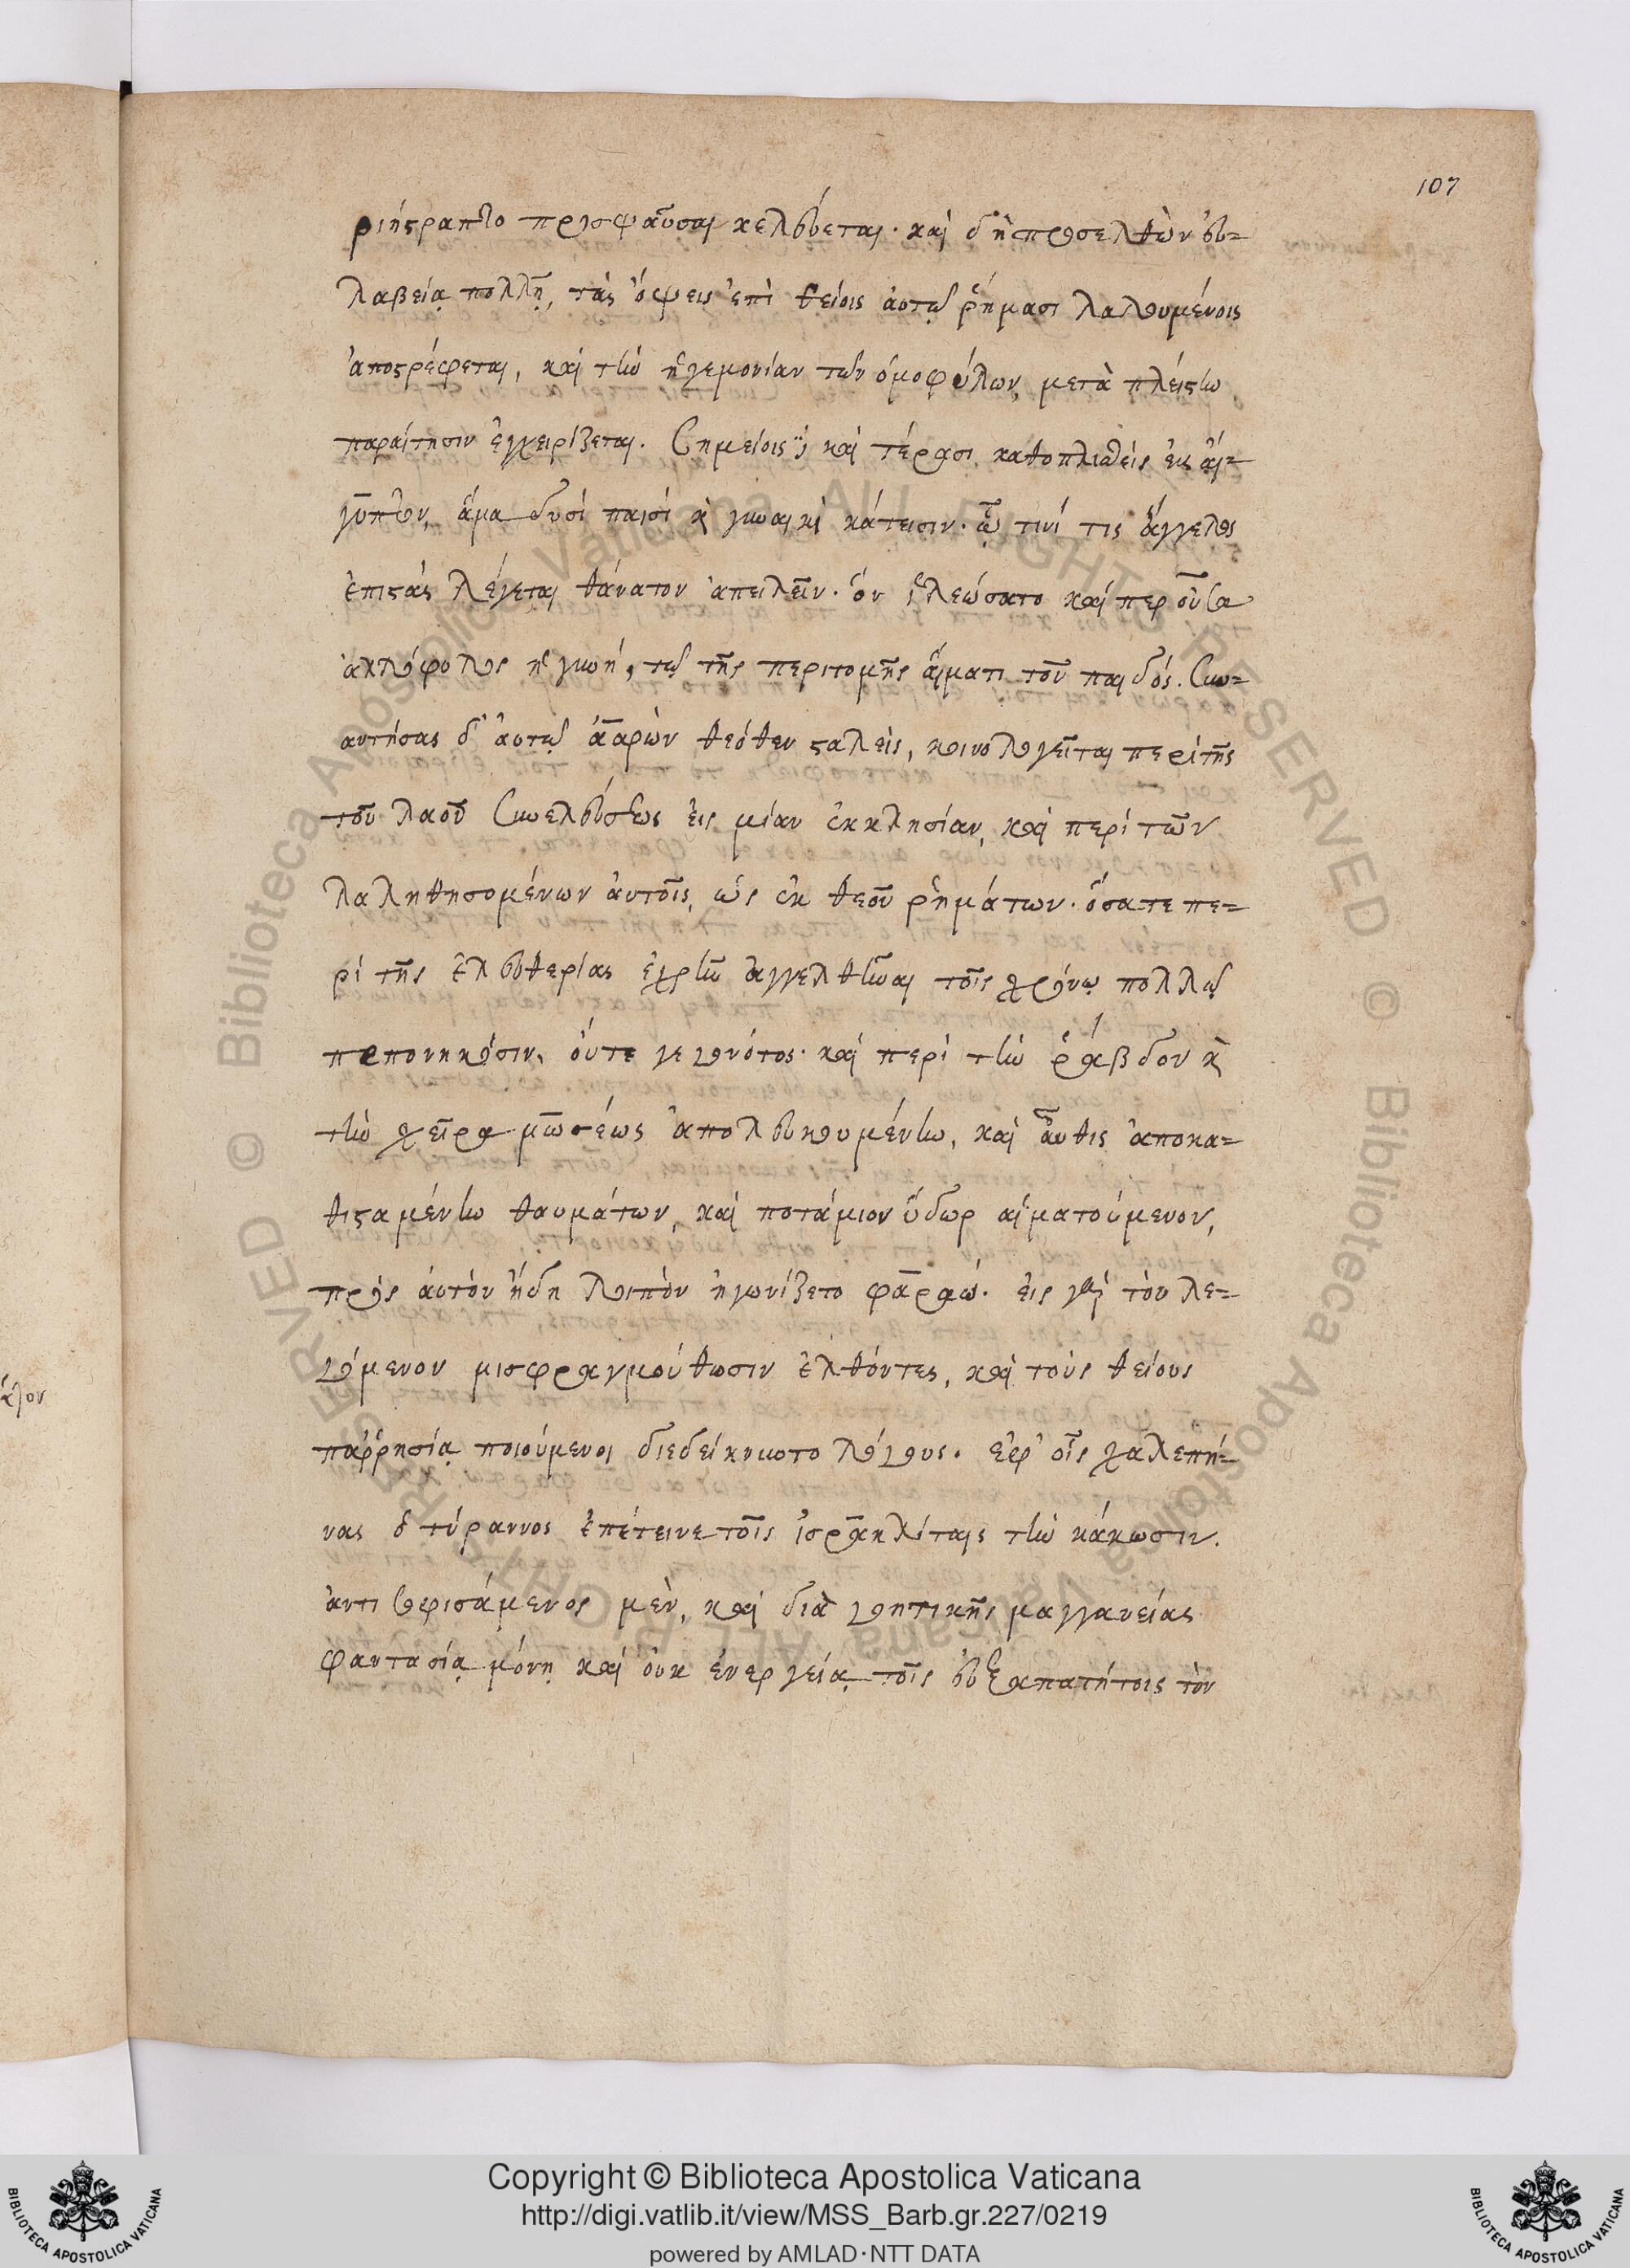 107
ριήστραπτο προσψαῦσαι κελεύεται· καὶ δὴ προσελθὼν εὐ=
λαβείᾳ πολλῇ, τὰς ὄψεις ἐπὶ θείοις αὐτῷ ῥήμασι λαλουμένοις
ἀποστρέφεται, καὶ τὴν ἡγεμονίαν τῶν ὁμοφύλων, μετὰ πλείστην
παραίτησιν ἐγχειρίζεται. Σημείοις δὲ καὶ τέρασι καθοπλισθεὶς εἰς αἴ=
γυπτον, ἅμα δυσὶ παισὶ καὶ γυναικὶ κάτεισιν. ᾧ τινί τις ἄγγελος
ἐπιστὰς λέγεται θάνατον ἀπειλεῖν· ὃν ἱλεώσατο καί περ οὖσα
ἀλλόφυλος ἡ γυνή, τῷ τῆς περιτομῆς αἵματι τοῦ παιδός. Συν=
αντήσας δ' αὐτῷ ἀαρὼν θεόθεν σταλεὶς, κοινολογεῖται περὶ τῆς
τοῦ λαοῦ συνελεύσεως εἰς μίαν ἐκκλησίαν, καὶ περὶ τῶν
λαληθησομένων αὐτοῖς, ὡς ἐκ θεοῦ ῥημάτων. ὅσα τε πε=
ρὶ τῆς ἐλευθερίας ἐχρῆν ἀγγελθῆναι τοῖς χρόνῳ πολλῷ
πεπονηκόσιν, οὔτε γεγονότος· καὶ περὶ τὴν ῥάβδον καὶ
τὴν χεῖρα μωσέως ἀπολευκουμένην, καὶ αὖθις ἀποκα=
θισταμένην θαυμάτων, καὶ ποτάμιον ὕδωρ αἱματούμενον,
πρὸς αὐτὸν ἤδη λοιπὸν ἠγωνίζετο φαραώ. εἰς γὰρ τὸν λε=
γόμενον μισφραγμούθωσιν ἐλθόντες, καὶ τοὺς θείους
παῤῥησίᾳ ποιούμενοι διεδείκνυντο λόγους. ἐφ' οἷς χαλεπή=
νας ὁ τύραννος ἐπέτεινε τοῖς ἰσραηλίταις τὴν κάκωσιν.
ἀντιφερισάμενος μὲν, καὶ διὰ γοητικῆς μαγγανείας
φαντασίᾳ μόνῃ καὶ οὐκ ἐνεργείᾳ τοῖς εὐεξαπατήτοις τὸν
Copyright © Biblioteca Apostolica Vaticana
http://digi.vatlib.it/view/MSS_Barb.gr.227/0219
powered by AMLAD·NTT DATA
BIBLIOTECA APOSTOLICA VATICANA
BIBLIOTECA APOSTOLICA VATICANA
© Biblioteca Apostolica Vaticana ALL RIGHTS RESERVED © Biblioteca Apostolica Vaticana ALL RIGHTS RESERVED